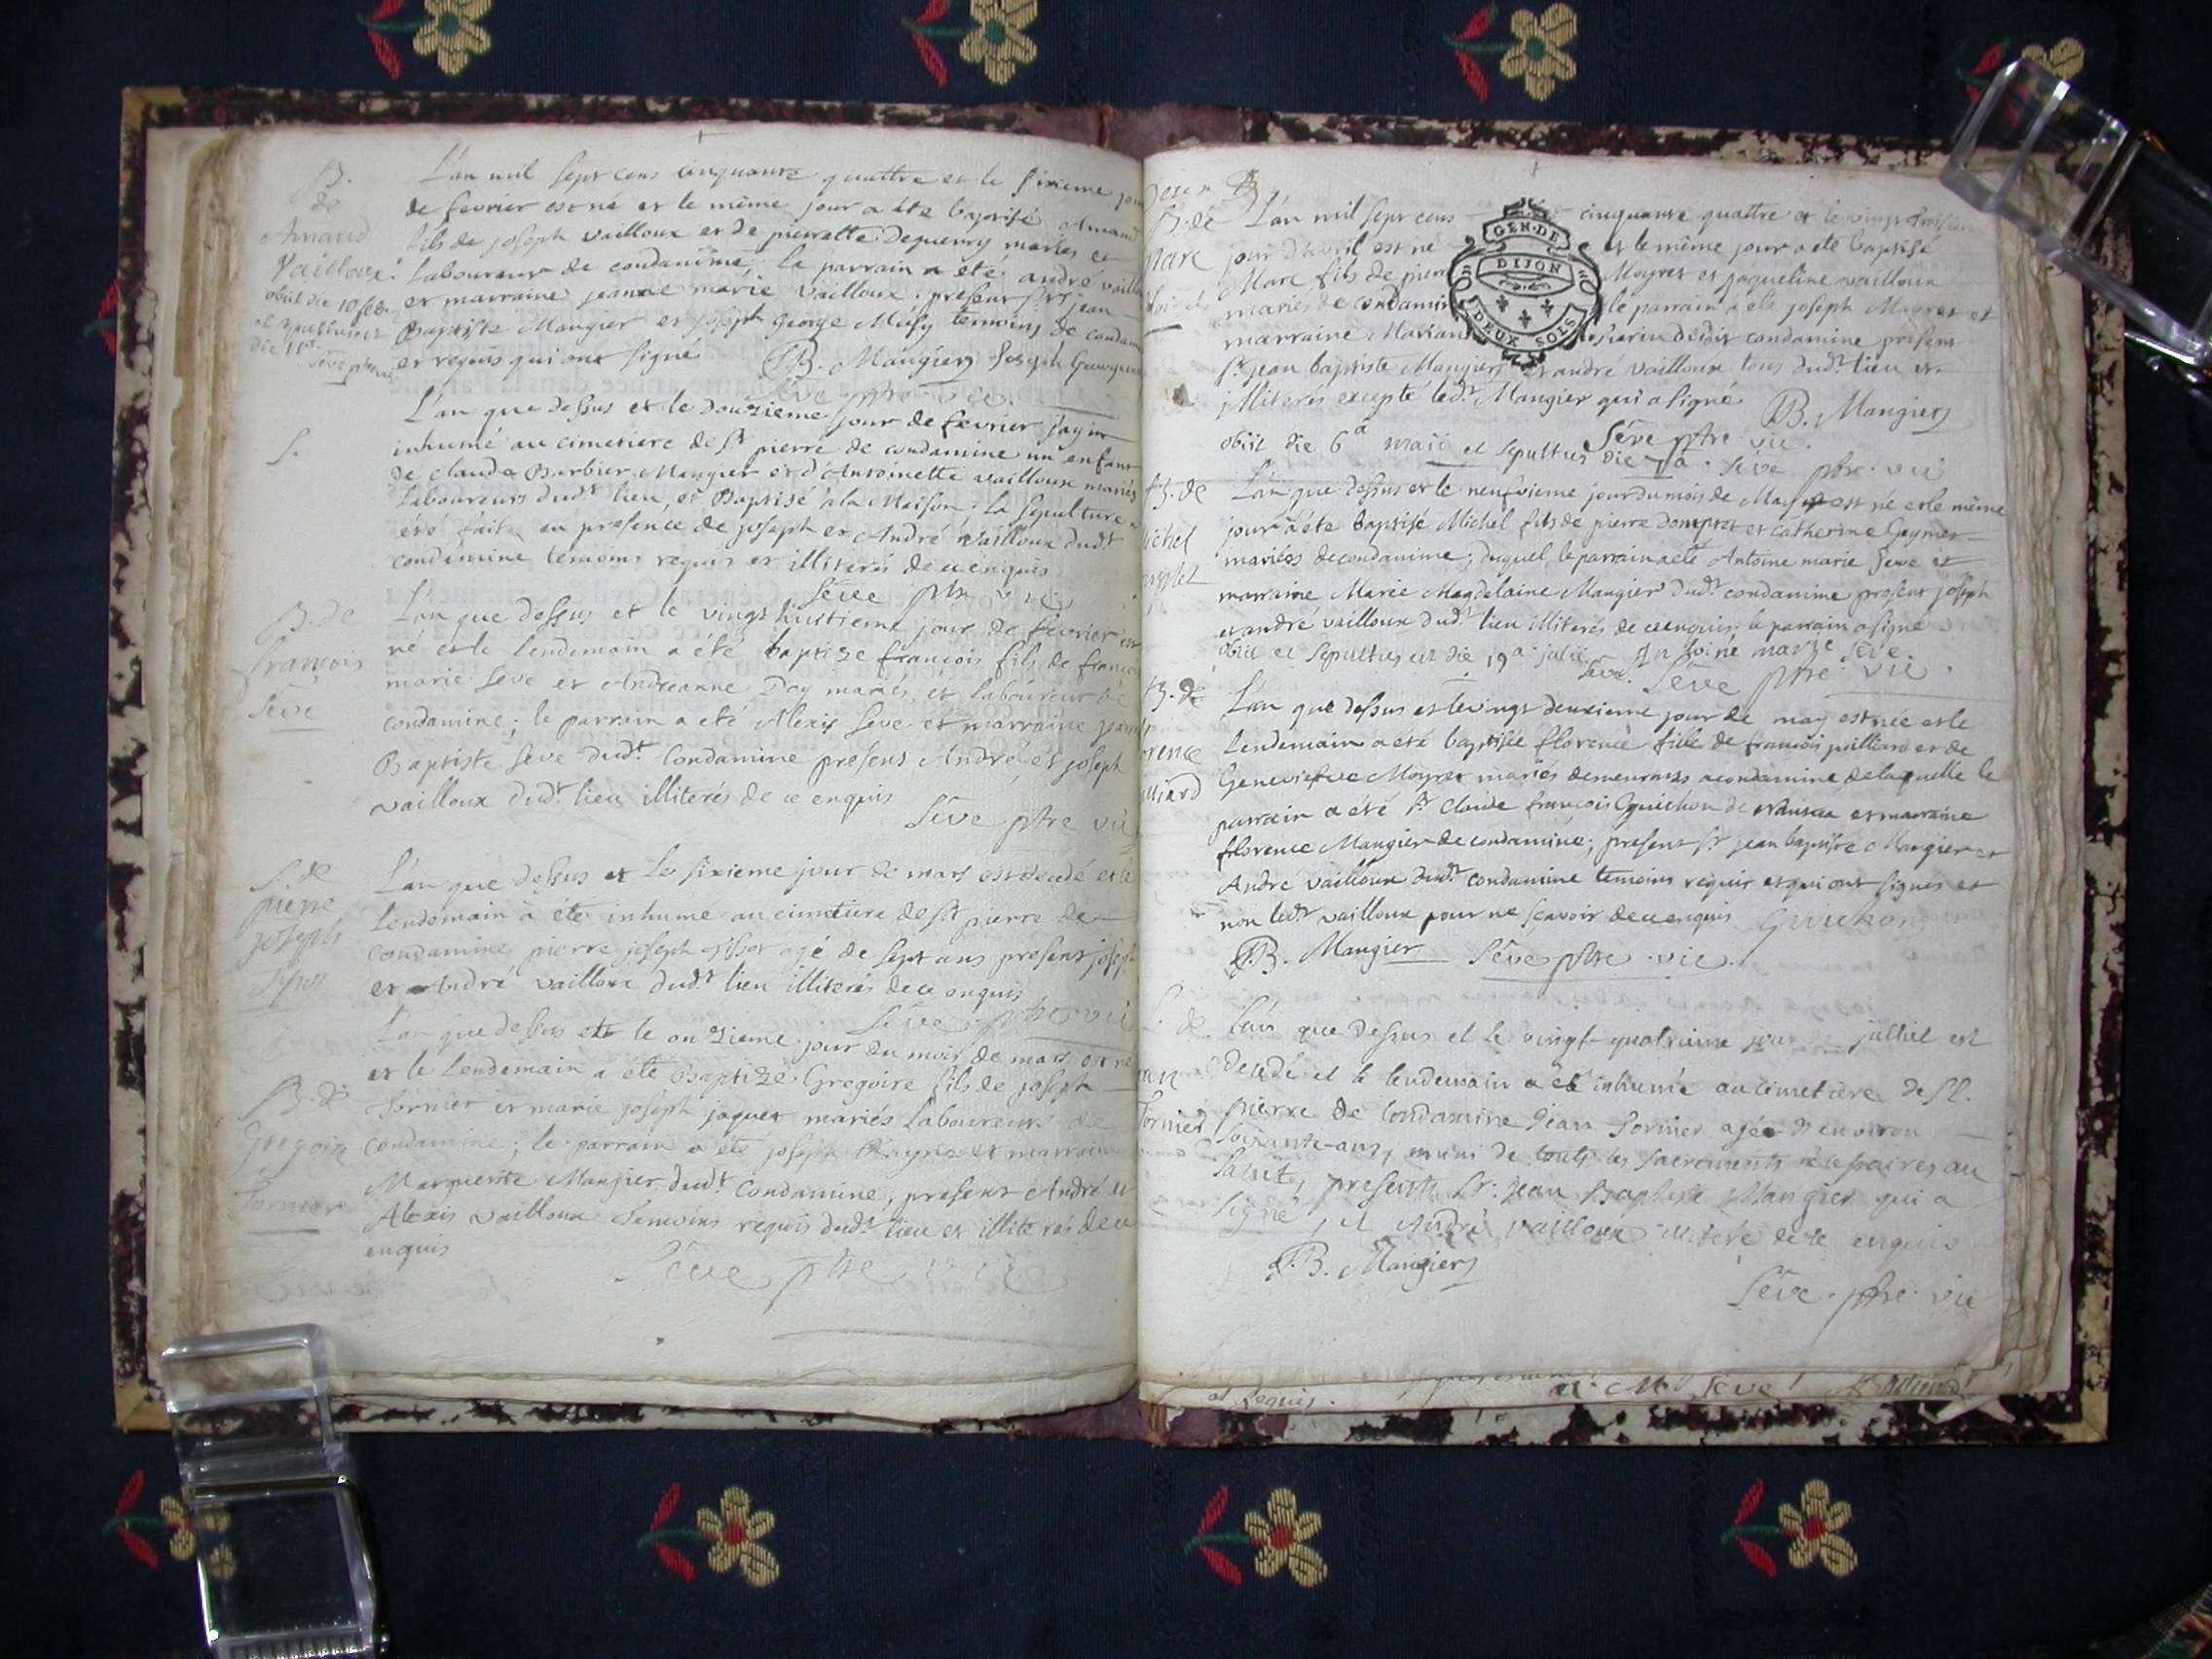 B.
de
Amand
Vailloux
obiit die 10 feb.
et sepultus est
die 11a
Seve ptre
L'an mil sept cens cinquante quattre et le sixieme jour
de fevrier est né et le même jour a été baptisé Amand
fils de joseph vailloux et de pierrette Depierry mariés et
laboureurs de condamine le parrain a été andré vailloux
et marraine jeanne marie vailloux. present Sr jean
Baptiste Mangier et joseph George temoins de condamine
et requis qui ont signé JB. Mangier Joseph George
Seve ptre vic.
S.
L'an que dessus et le Douzieme jour de fevrier jay
inhumé au cimetiere de St pierre de condamine un enfant
de claude Barbier Mangier et d'Antoinette vailloux mariés
Laboureurs dudt lieu, et Baptisé a la Maison. La sepulture a
eté faite en presence de joseph et André vailloux dudt
condamine temoins requis et illiterés de ce enquis
Seve ptre vic
B. de
francois
Seve
L'an que dessus et le vingt huitieme jour de fevrier est
né et le lendemain a été baptize francois fils de francois
marie Seve et Andréanne Doy mariés et laboureur de
condamine; le parrain a eté Alexis Seve et marraine jeanne
Baptiste Seve dudt Condamine presens André et joseph
vailloux dudt lieu illiterés de ce enquis
Seve ptre vic
S. de
pierre
joseph
L'an que dessus et le sixieme jour de mars est decedé et le
lendemain a été inhumé au cimetiere de St pierre de
condamine pierre joseph agé de sept ans presens joseph
et André vailloux dudt lieu illiterés de ce enquis
Seve ptre vic
B. de
Gregoire
Fornier
L'an que dessus et le onzieme jour du mois de mars est né
et le Lendemain a été Baptizé Gregoire fils de joseph
Fornier et marie joseph jaquet mariés laboureurs de
condamine; le parrain a été joseph et marraine
Marguerite Mangier dudt Condamine, present André et
Alexis vailloux temoins requis dudt lieu et illiterés de ce
enquis
Seve ptre vic
B. de
Marc
L'an mil sept cens cinquante quattre et le vingt troisieme
jour d'avril est né et le même jour a eté baptisé
Marc fils de pierre Moyret et jaqueline vailloux
mariés de condamine le parrain a eté joseph Moyret et
marraine Mariane dudit condamine present
Sr jean baptiste Mangier et andré vailloux tous dudt lieu et
illiterés excepté ledt Mangier qui a signé JB. Mangier
Seve ptre vic.
obiit die 6a maii et sepultus die 7a. Seve ptre vic
GEN. DE
DIJON
DEUX SOLS
B. de
Michel
L'an que dessus et le neufvieme jour du mois de May est né et le même
jour a été baptisé Michel fils de pierre Domptet et Catherine
mariés de condamine; duquel le parrain a eté Antoine marie Seve et
marraine Marie Magdelaine Mangier dudt condamine present joseph
et andré vailloux dudt lieu illiterés de ce enquis; le parrain a signé
obiit et sepultus est die 19a julii Antoine marie Seve.
Seve. Seve ptre vic
B. de
L'an que dessus et le vingt deuxieme jour de may est née et le
lendemain a eté baptisée florence fille de francois pilliard et de
Geneviefve Moyret mariés demeurants a condamine de laquelle le
parrain a été Sr Claude francois Guichon de et marraine
florence Mangier de condamine; present Sr jean baptiste Mangier et
André vailloux dudt condamine temoins requis et qui ont signés et
non ledt vailloux pour ne scavoir de ce enquis Guichon
JB. Mangier Seve ptre vic.
S. de
jean
Fornier
L'an que dessus et le vingt-quatrieme jour juillet est
decedé et le lendemain a eté inhumé au cimetiere de St.
pierre de Condamine Jean Fornier agé d'environ
soixante-ans, muni de touts les sacrements necessaires au
salut, presents Sr: Jean Baptiste Mangier qui a
signé, et André vailloux illiteré de ce enquis
JB. Mangier
Seve ptre vic
et requis.
Seve